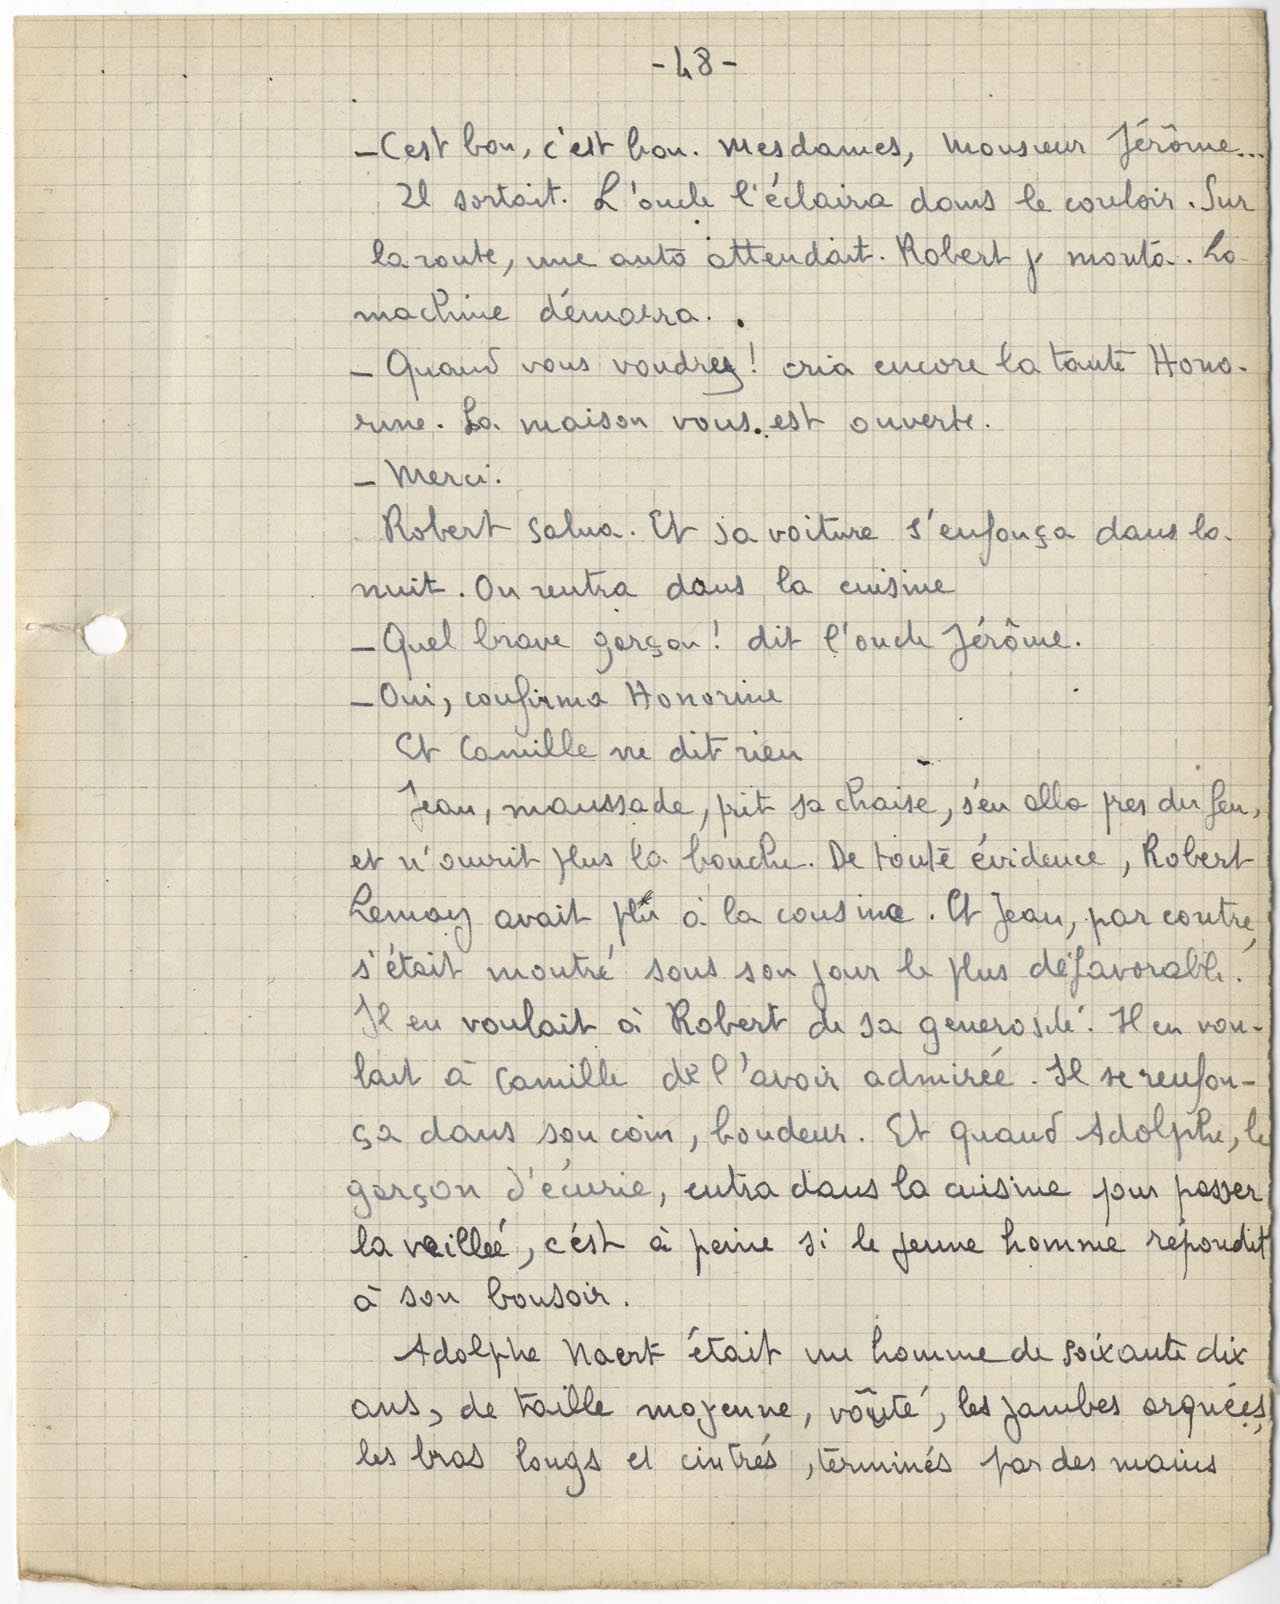 -48-
- C'est bon, c'est bon. Mesdames, Monsieur Jérôme...
Il sortait. L'oncle l'éclaira dans le couloir. Sur
la route, une auto attendait. Robert y monta. La
machine démarra.
- Quand vous voudrez ! cria encore la tante Hono-
rine. La maison vous est ouverte.
- Merci.
Robert salua. Et sa voiture s'enfonça dans la
nuit. On rentra dans la cuisine
- Quel brave garçon ! dit l'oncle Jérôme.
- Oui, confirma Honorine
Et Camille ne dit rien
Jean, maussade, prit sa chaise, s'en alla pres du feu,
et n'ouvrit plus la bouche. De toute évidence, Robert
Lemay avait plu à la cousine. Et Jean, par contre,
s'était montré sous son jour le plus défavorable.
Il en voulait à Robert de sa generosité. Il en vou-
lait à Camille de l'avoir admirée. Il se renfon-
ça dans son coin, boudeur. Et quand Adolphe, le
garçon d'écurie, entra dans la cuisine pour passer
la veillée, c'est à peine si le jeune homme répondit
à son bonsoir.
Adolphe Naert était un homme de soixante dix
ans, de taille moyenne, voûté, les jambes arquées,
les bras longs et cintrés, terminés par des mains